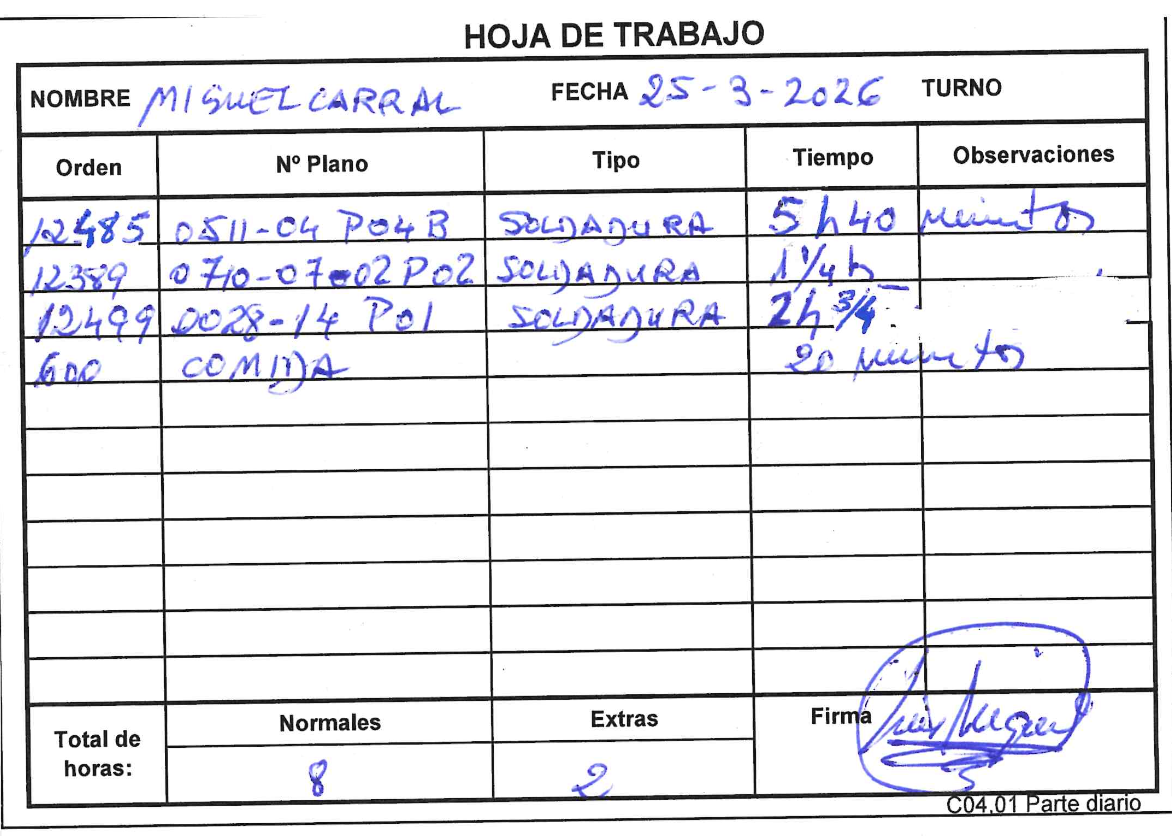 HOJA DE TRABAJO
NOMBRE MIGUEL CARRAL FECHA 25-3-2026 TURNO
Orden Nº Plano Tipo Tiempo Observaciones
12485 0511-04 P04B SOLDADURA 5h40 minutos
12389 0710-07-02 P02 SOLDADURA 1 1/4 h
12499 0028-14 P01 SOLDADURA 2h 3/4
600 COMIDA 20 minutos
Total de horas: Normales Extras Firma
8 2
C04.01 Parte diario